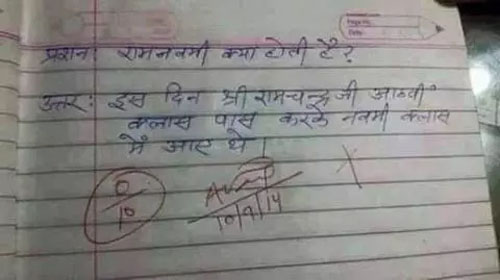 प्रशन: रामनवमी क्या होती है?
उत्तर: इस दिन श्री रामचन्द्र जी आठवीं
क्लास पास करके नवमी क्लास
में आए थे।
0/10
10/9/14